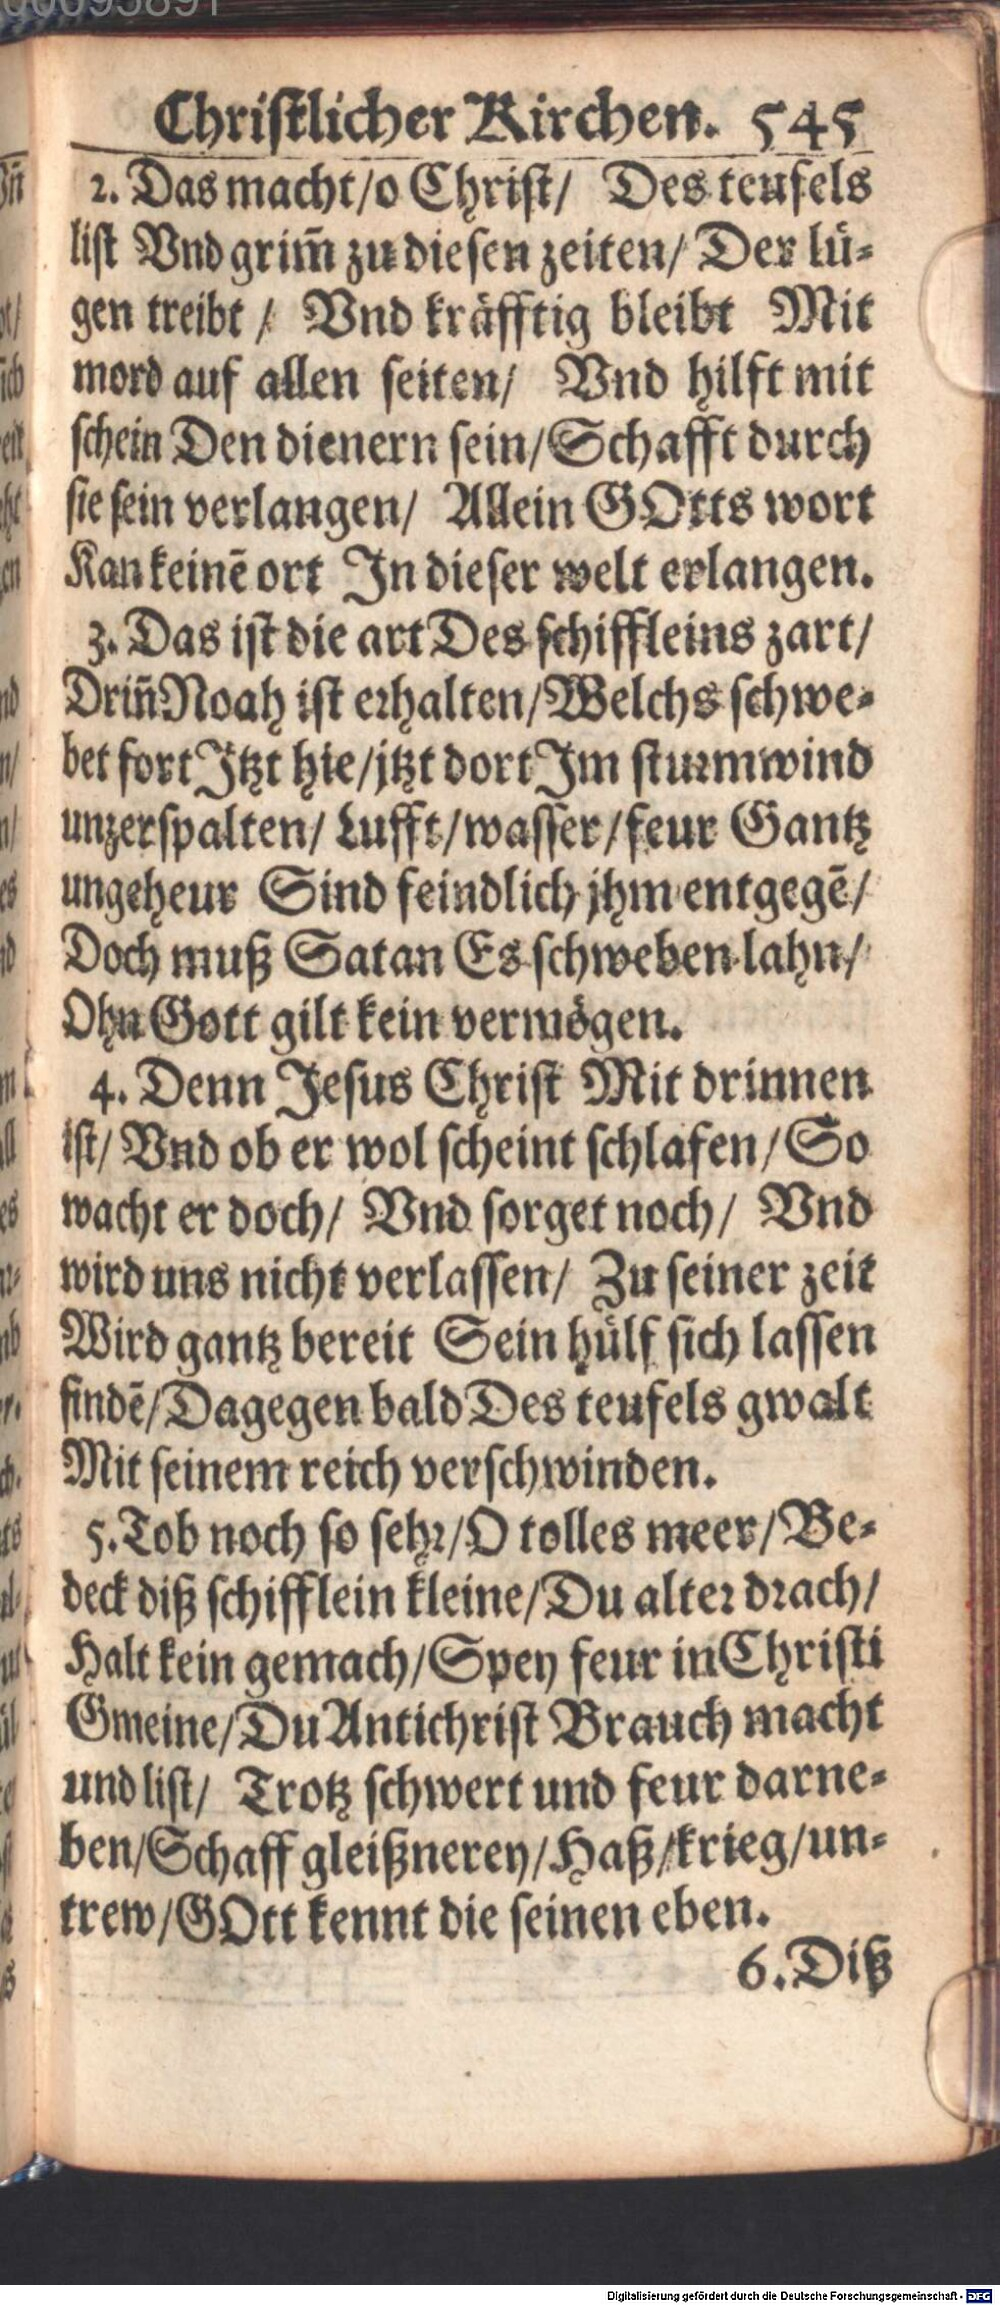 Christlicher Kirchen. 545
2. Das macht/o Christ/ Des teufels
list Vnd grim̄ zu diesen zeiten/ Der lü-
gen treibt / Vnd kräfftig bleibt Mit
mord auf allen seiten/ Vnd hilft mit
schein Den dienern sein/Schafft durch
sie sein verlangen/ Allein GOtts wort
Kan keinē ort In dieser welt erlangen.
3. Das ist die art Des schiffleins zart/
Drin̄ Noah ist erhalten/Welchs schwe-
bet fort Jtzt hie/jtzt dort Im sturmwind
unzerspalten/ Lufft/wasser/feur Gantz
ungeheur Sind feindlich jhm entgegē/
Doch muß Satan Es schweben lahn/
Ohn Gott gilt kein vermögen.
4. Denn Jesus Christ Mit drinnen
ist/ Vnd ob er wol scheint schlafen/So
wacht er doch/ Vnd sorget noch/ Vnd
wird uns nicht verlassen/ Zu seiner zeit
Wird gantz bereit Sein hülf sich lassen
findē/Dagegen bald Des teufels gwalt
Mit seinem reich verschwinden.
5. Tob noch so sehr/O tolles meer/Be-
deck diß schifflein kleine/Du alter drach/
Halt kein gemach/Spey feur in Christi
Gmeine/Du Antichrist Brauch macht
und list/ Trotz schwert und feur darne-
ben/Schaff gleißnerey/Haß/krieg/un-
trew/GOtt kennt die seinen eben.
6. Diß
Digitalisierung gefördert durch die Deutsche Forschungsgemeinschaft - DFG